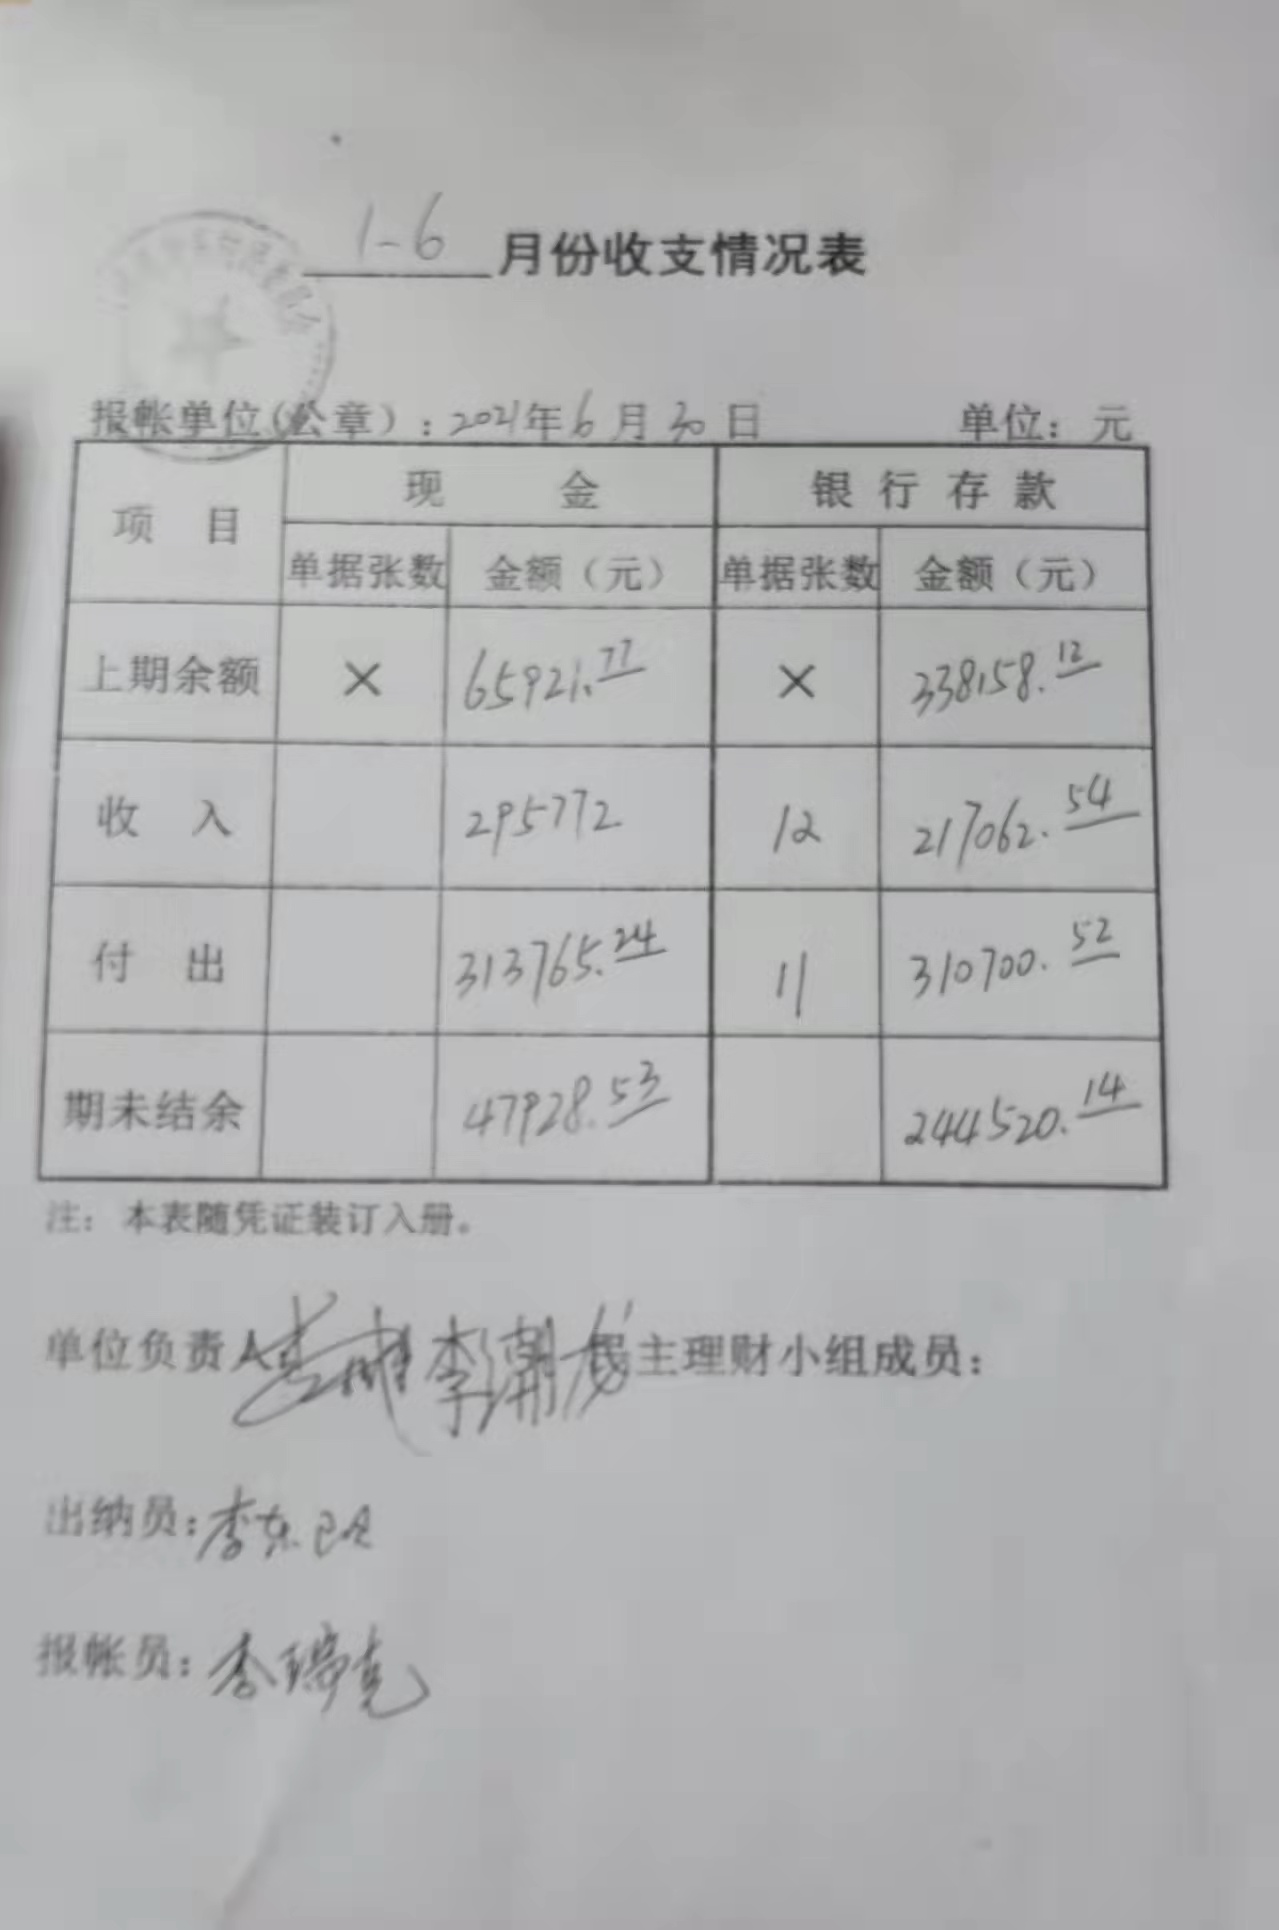 1-6 月份收支情况表
报帐单位(公章):2021年6月30日 单位:元
项 目 现 金 银行存款
单据张数 金额(元) 单据张数 金额(元)
上期余额 × 65921.77 × 338158.12
收 入 295772 12 217062.54
付 出 313765.24 11 310700.52
期未结余 47928.53 244520.14
注:本表随凭证装订入册。
单位负责人 李潮 主理财小组成员:
出纳员:李东
报帐员:李瑞克